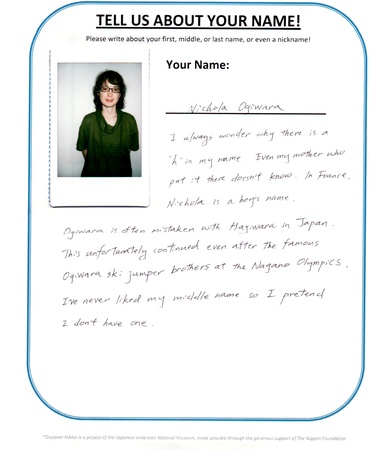 TELL US ABOUT YOUR NAME!
Please write about your first, middle, or last name, or even a nickname!
Your Name:
Nichola Ogiwara
I always wonder why there is a
'h' in my name. Even my mother who
put it there doesn't know. In France,
Nichola is a boy's name.
Ogiwara is often mistaken with Hagiwara in Japan.
This unfortunately continued even after the famous
Ogiwara ski jumper brothers at the Nagano Olympics.
I've never liked my middle name so I pretend
I don't have one.
*Discover Nikkei is a project of the Japanese American National Museum, made possible through the generous support of The Nippon Foundation